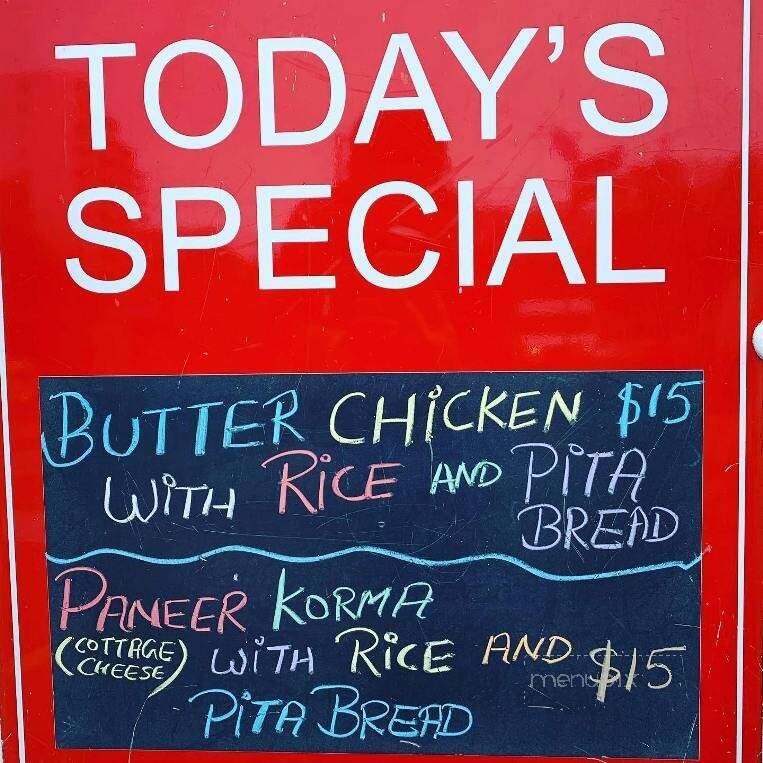 TODAY'S
SPECIAL
BUTTER CHiCKEN $15
WiTH RiCE AND PiTA
BREAD
PANEER KORMA
(COTTAGE
CHEESE) WiTH RiCE AND $15
menupix
PiTA BREAD